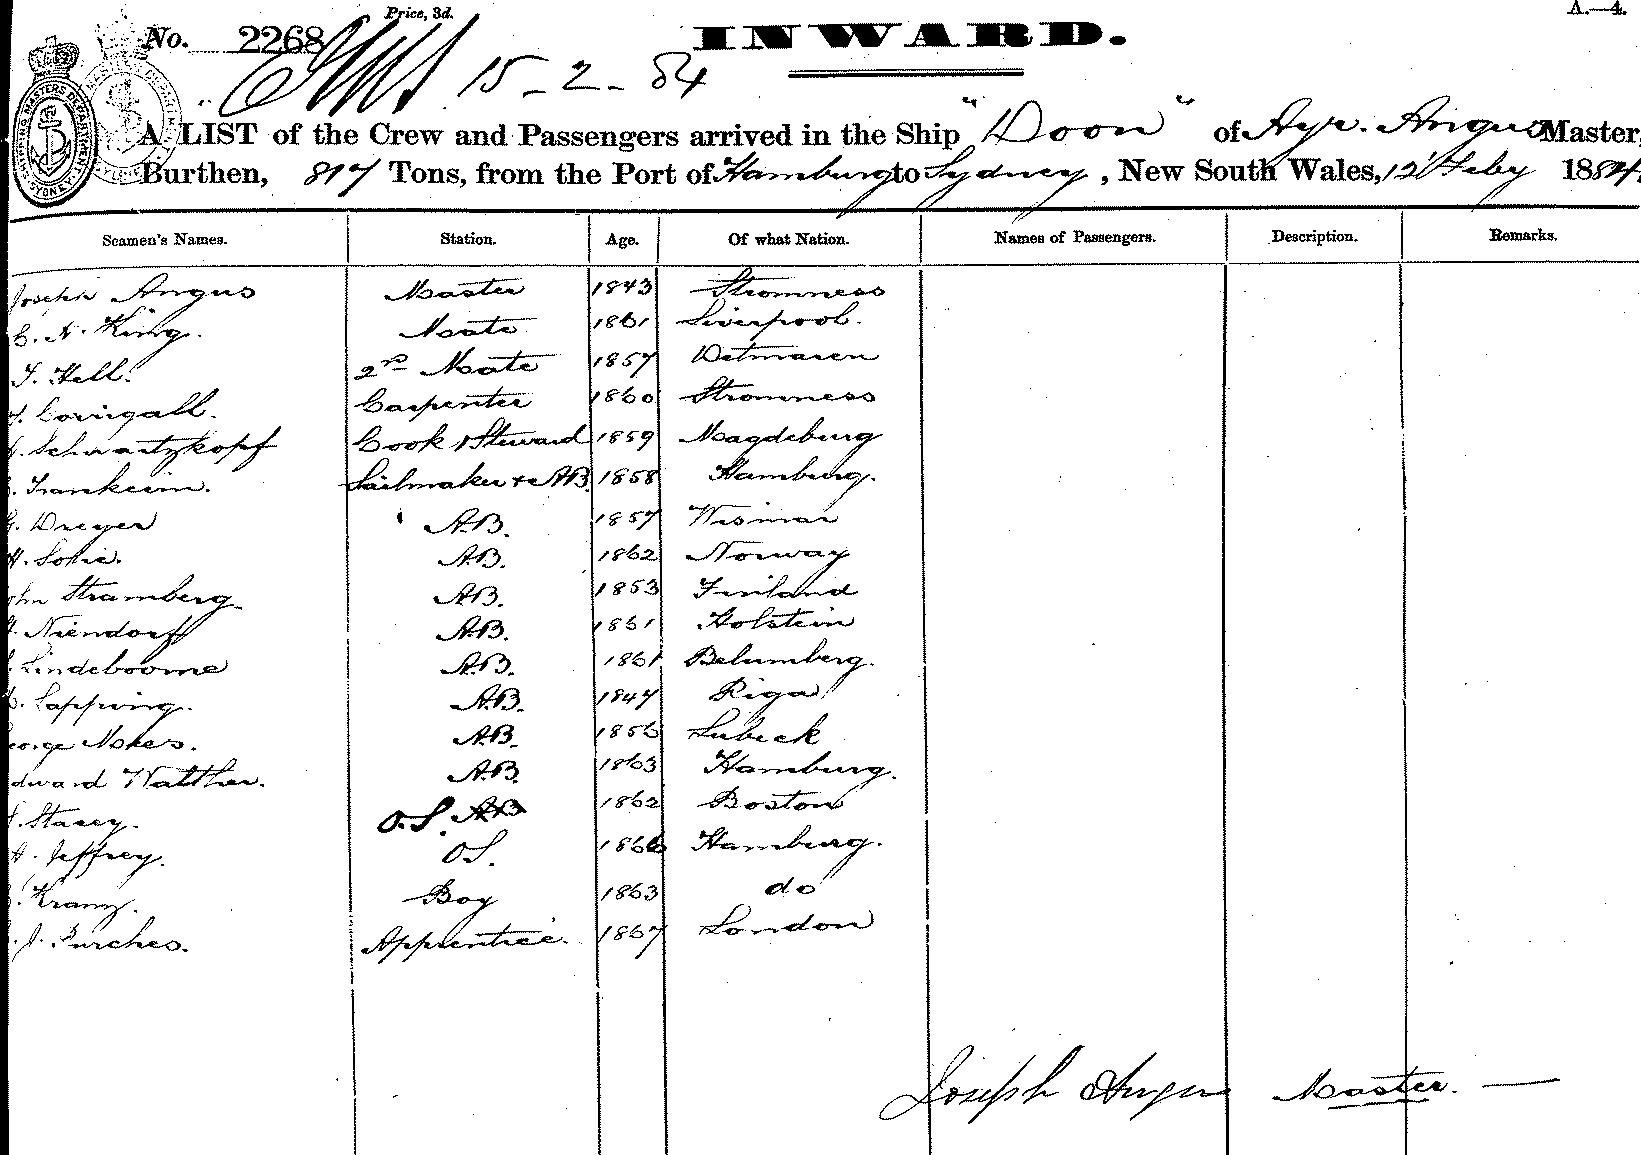 Price, 3d.
A.—4.
No. 2268
INWARD.
15-2-84
A LIST of the Crew and Passengers arrived in the Ship "Doon" of Ayr. Angus Master,
Burthen, 817 Tons, from the Port of Hamburg to Sydney, New South Wales, 12 Feby 1884.
Seamen's Names. Station. Age. Of what Nation. Names of Passengers. Description. Remarks.
Joseph Angus Master 1843 Stromness
C. N. King. Mate 1861 Liverpool.
Hell. 2nd Mate 1857 Detmaren
Corrigall. Carpenter 1860 Stromness
Schwartzkopf Cook & Steward 1859 Magdeburg
Frankeim. Sailmaker & AB. 1858 Hamburg.
Dreyer A.B. 1857 Wismar
H. A.B. 1862 Norway
ohn Stramberg A.B. 1853 Finland
Niendorf A.B. 1861 Holstein
Lindeboome A.B. 1861 Belumberg.
Lapping. A.B. 1847 Riga
eorge A.B. 1856 Lubeck
dward Walther. A.B. 1863 Hamburg.
Stacey. O.S. 1862 Boston
H. Jeffrey. O.S. 1866 Hamburg.
Kranz. Boy 1863 do
J. Purches. Apprentice. 1867 London
Joseph Angus Master.